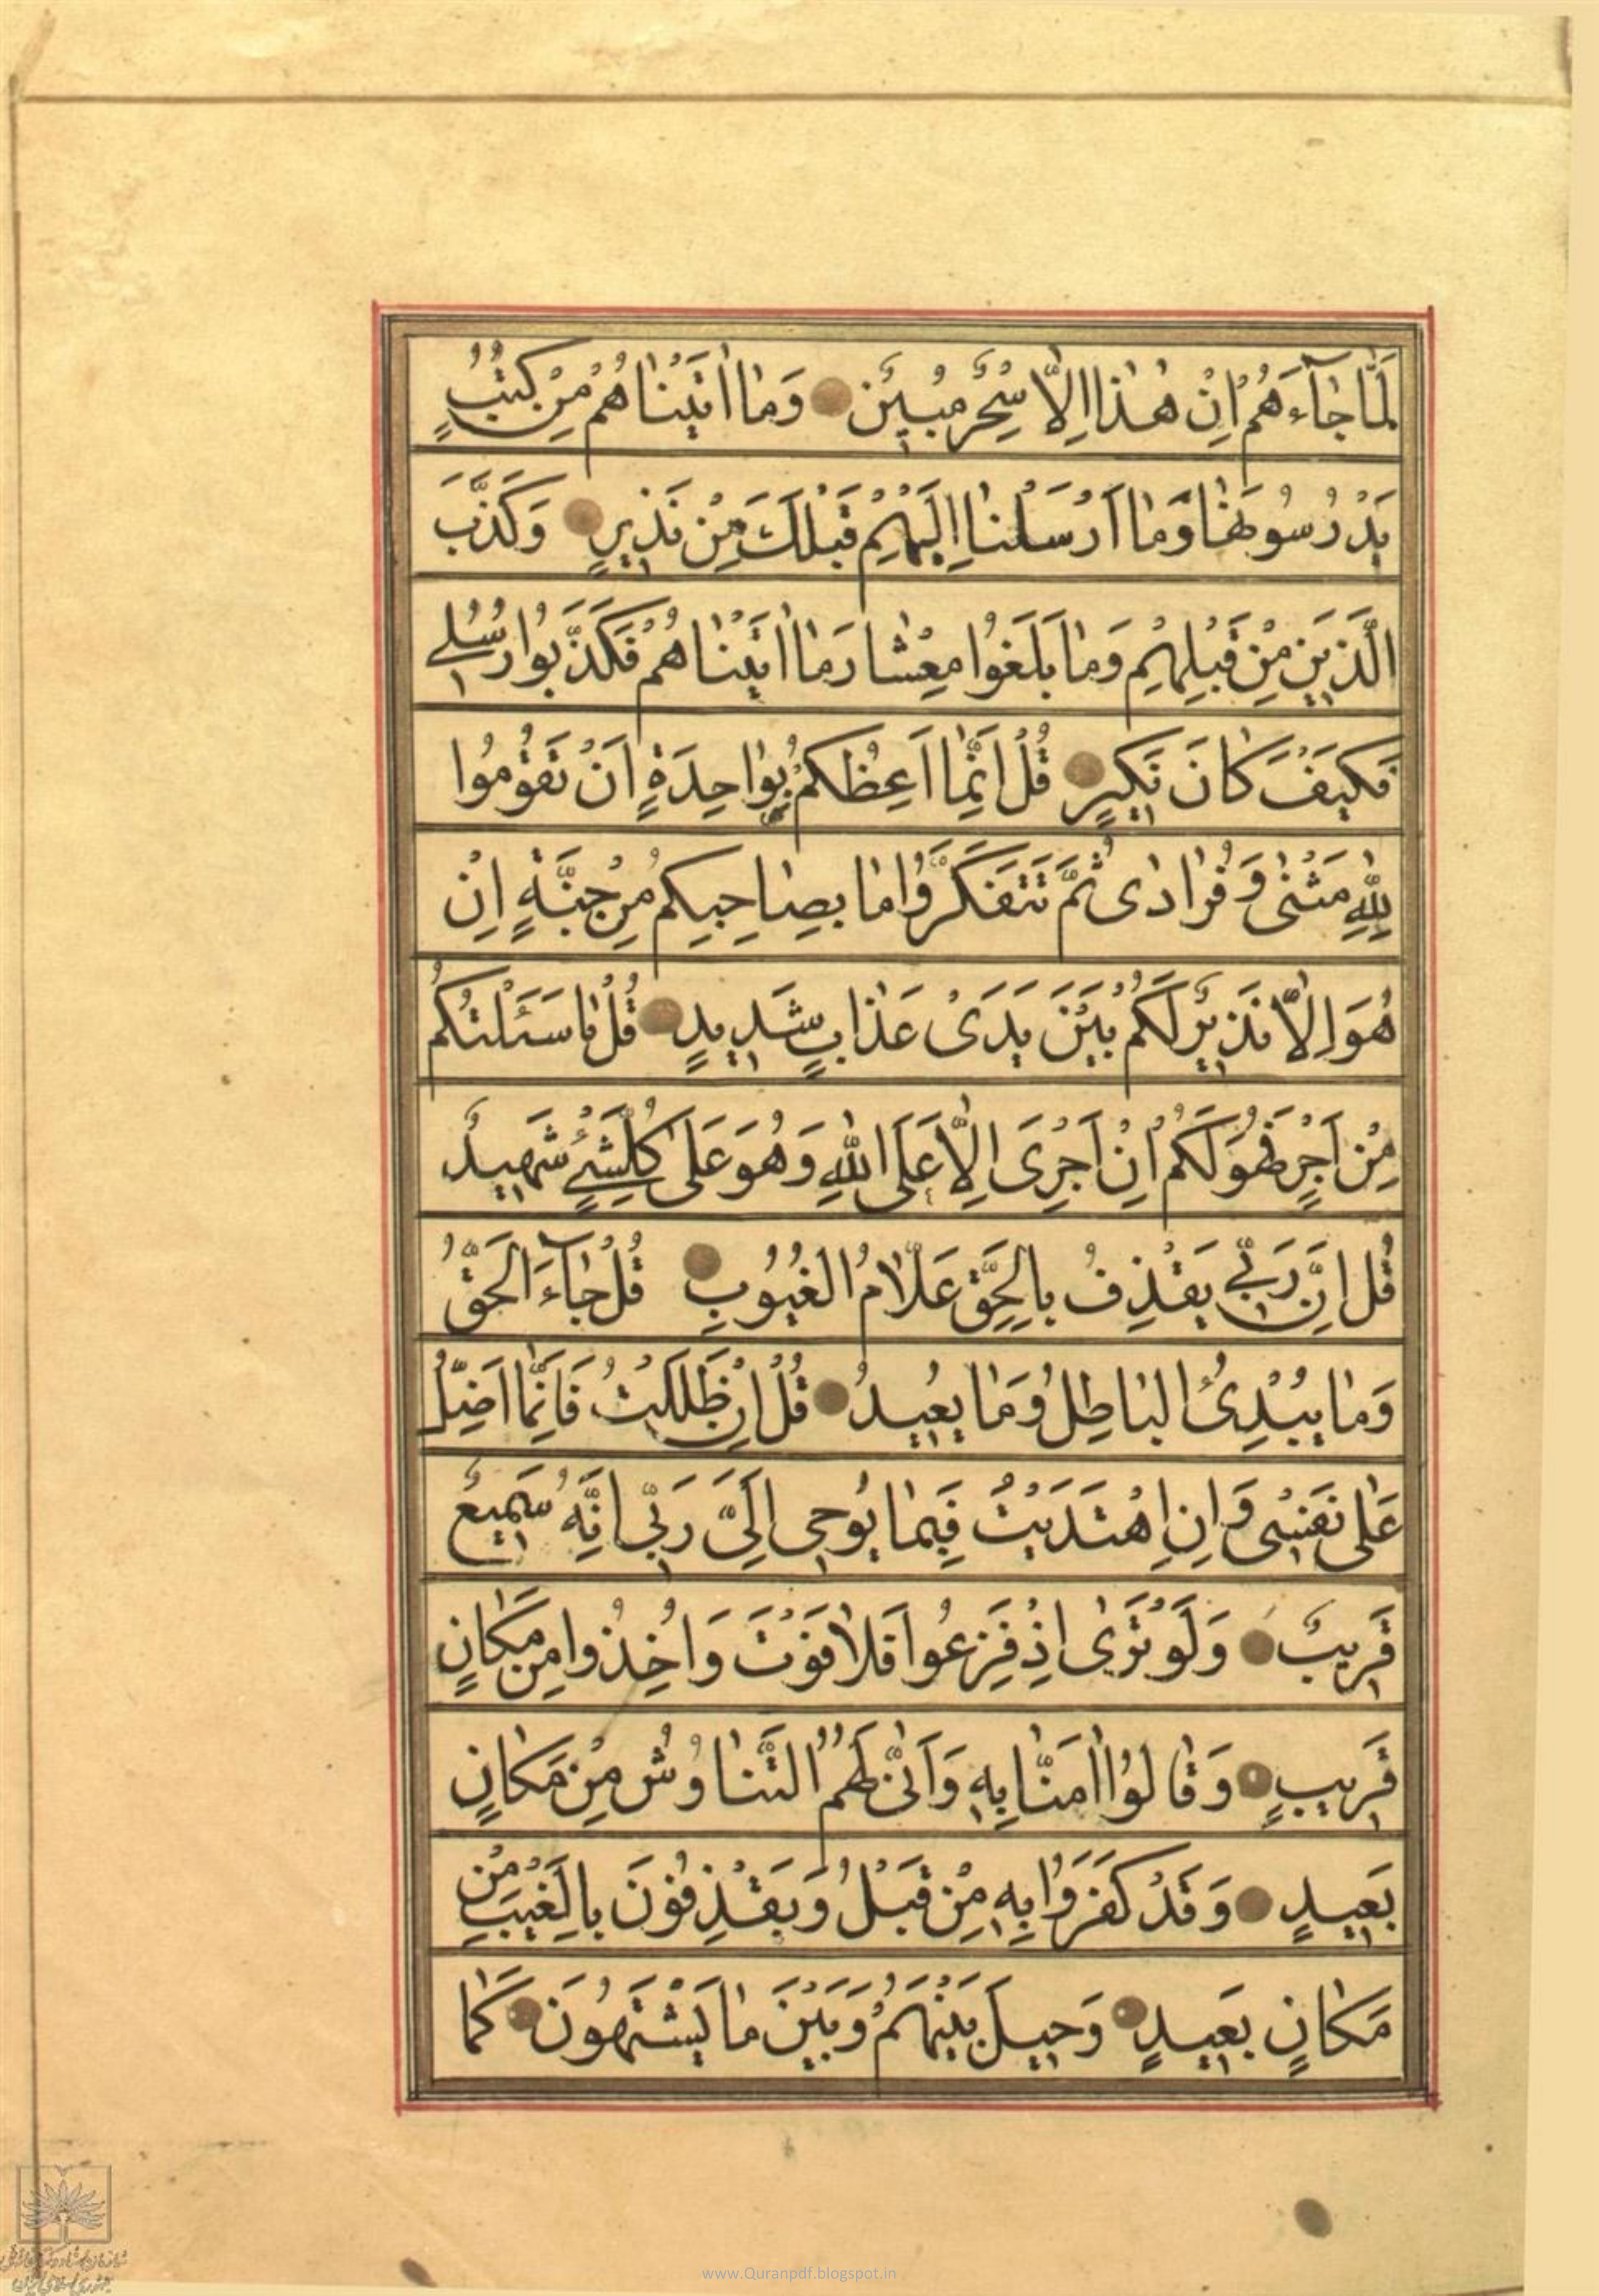 لَمَّا جٰآءَهُمْ اِنْ هٰذا اِلّا سِحْرٌ مُبينٌ وَمٰا اٰتَيْنٰاهُمْ مِنْ كُتُبٍ
يَدْرُسُونَهٰا وَمٰا اَرْسَلْنٰا اِلَيْهِمْ قَبْلَكَ مِنْ نَذيرٍ وَكَذَّبَ
الَّذينَ مِنْ قَبْلِهِمْ وَمٰا بَلَغُوا مِعْشٰارَ مٰا اٰتَيْنٰاهُمْ فَكَذَّبُوا رُسُلي
فَكَيْفَ كٰانَ نَكيرِ قُلْ اِنَّمٰا اَعِظُكُمْ بِوٰاحِدَةٍ اَنْ تَقُومُوا
لِلّٰهِ مَثْنٰى وَفُرٰادٰى ثُمَّ تَتَفَكَّرُوا مٰا بِصٰاحِبِكُمْ مِنْ جِنَّةٍ اِنْ
هُوَ اِلّٰا نَذيرٌ لَكُمْ بَيْنَ يَدَىْ عَذٰابٍ شَديدٍ قُلْ مٰا سَئَلْتُكُمْ
مِنْ اَجْرٍ فَهُوَ لَكُمْ اِنْ اَجْرِىَ اِلّٰا عَلَى اللّٰهِ وَهُوَ عَلٰى كُلِّ شَيْءٍ شَهيدٌ
قُلْ اِنَّ رَبّي يَقْذِفُ بِالْحَقِّ عَلّٰامُ الْغُيُوبِ قُلْ جٰآءَ الْحَقُّ
وَمٰا يُبْدِئُ الْبٰاطِلُ وَمٰا يُعيدُ قُلْ اِنْ ضَلَلْتُ فَاِنَّمٰا اَضِلُّ
عَلٰى نَفْسى وَاِنِ اهْتَدَيْتُ فَبِمٰا يُوحى اِلَىَّ رَبّى اِنَّهُ سَميعٌ
قَريبٌ وَلَوْ تَرٰى اِذْ فَزِعُوا فَلٰا فَوْتَ وَاُخِذُوا مِنْ مَكٰانٍ
قَريبٍ وَقٰالُوا اٰمَنّٰا بِهِ وَاَنّٰى لَهُمُ التَّنٰاوُشُ مِنْ مَكٰانٍ
بَعيدٍ وَقَدْ كَفَرُوا بِهِ مِنْ قَبْلُ وَيَقْذِفُونَ بِالْغَيْبِ مِنْ
مَكٰانٍ بَعيدٍ وَحيلَ بَيْنَهُمْ وَبَيْنَ مٰا يَشْتَهُونَ كَمٰا
www.Quranpdf.blogspot.in